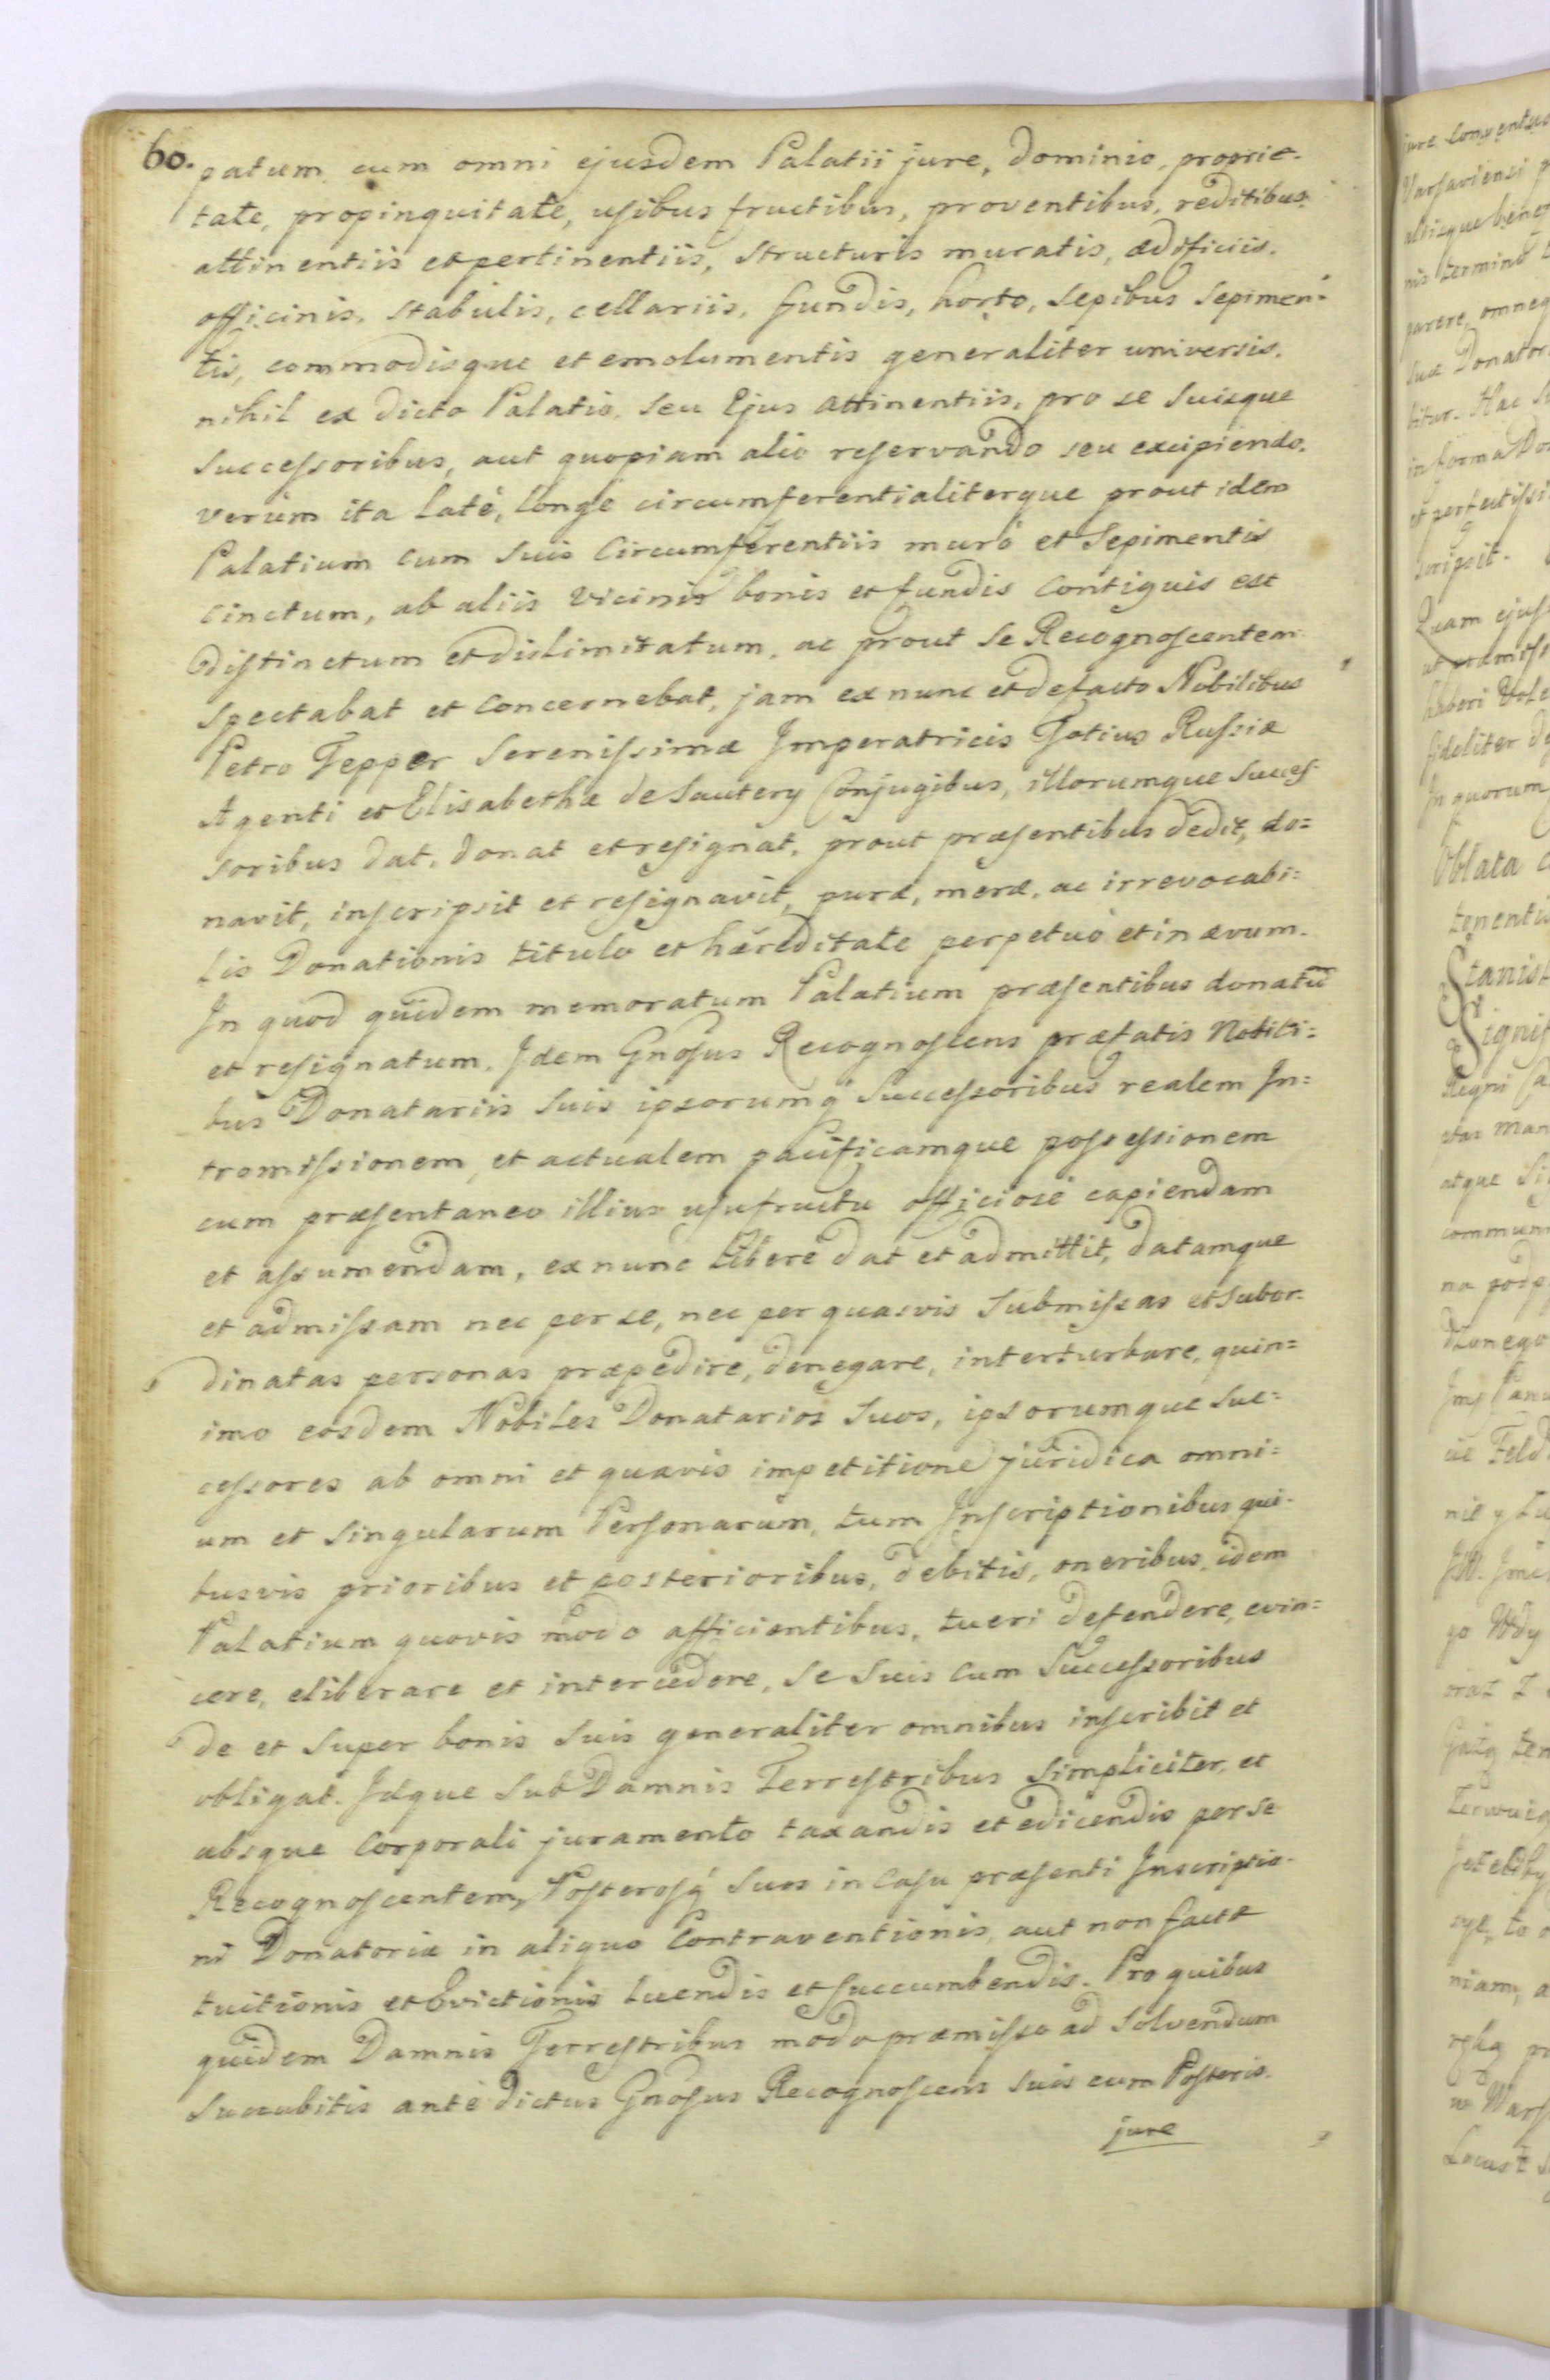 60.
patum cum omni ejusdem Palatii jure, dominio, proprie-
tate, propinquitate, usibus fructibus, proventibus, reditibus,
attinentiis et pertinentiis, structuris muratis, ædificiis,
officinis, stabulis, cellariis, fundis, horto, sepibus sepimen=
tis, commodisque et emolumentis generaliter universis,
nihil ex dicto Palatio, seu Ejus attinentiis, pro se suisque
Successoribus, aut quopiam alio reservando seu excipiendo,
verùm ita latè, longè circumferentialiterque prout idem
Palatium cum suis Circumferentiis muro et Sepimentis
cinctum, ab aliis vicinis bonis et fundis Contiguis est
distinctum et dislimitatum, ac prout Se Recognoscentem
spectabat et concernebat, jam ex nunc et de facto Nobilibus
Petro Tepper Serenissimæ Imperatricis Totius Russiæ
Agenti et Elisabethæ de Sautery Conjugibus, illorumque Succes-
soribus dat, donat et resignat, prout præsentibus dedit, do=
navit, inscripsit et resignavit, puræ, meræ, ac irrevocabi=
lis Donationis titulo et hæreditate perpetuò et in ævum.
In quod quidem memoratum Palatium præsentibus donatū
et resignatum, Idem Gnosus Recognoscens præfatis Nobili=
bus Donatariis Suis ipsorumq̃ Successoribus realem In=
tromissionem, et actualem pacificamque possessionem
cum præsentaneo illius usufructu officiosè capiendam
et assumendam, ex nunc liberè dat et admittit, datamque
et admissam nec per se, nec per quasvis submissas et subor-
dinatas personas præpedire, denegare, interturbare, quin=
imo eosdem Nobiles Donatarios suos, ipsorumque Suc=
cessores ab omni et quavis impetitione juridica omni=
um et Singularum Personarum, tum Inscriptionibus qui-
busvis prioribus et posterioribus, debitis, oneribus, idem
Palatium quovis modo afficientibus, tueri defendere, evin=
cere, eliberare et intercedere, Se Suis cum Successoribus
de et super bonis suis generaliter omnibus inscribit et
obligat. Idque Sub Damnis Terrestribus simpliciter, et
absque Corporali juramento taxandis et edicendis per se
Recognoscentem, Posterosq̃ Suos in Casu præsenti Inscriptio-
ni Donatoriæ in aliquo Contraventionis, aut non factæ
tuitionis et Evictionis luendis et succumbendis. Pro quibus
quidem Damnis Terrestribus modo præmisso ad Solvendum
Succubitis antè dictus Gnosus Recognoscens suis cum Posteris.
jure